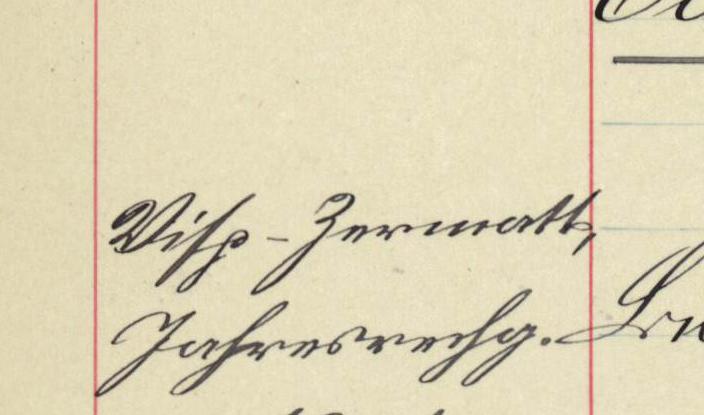 Visp-Zermatt,
Jahresrechg.